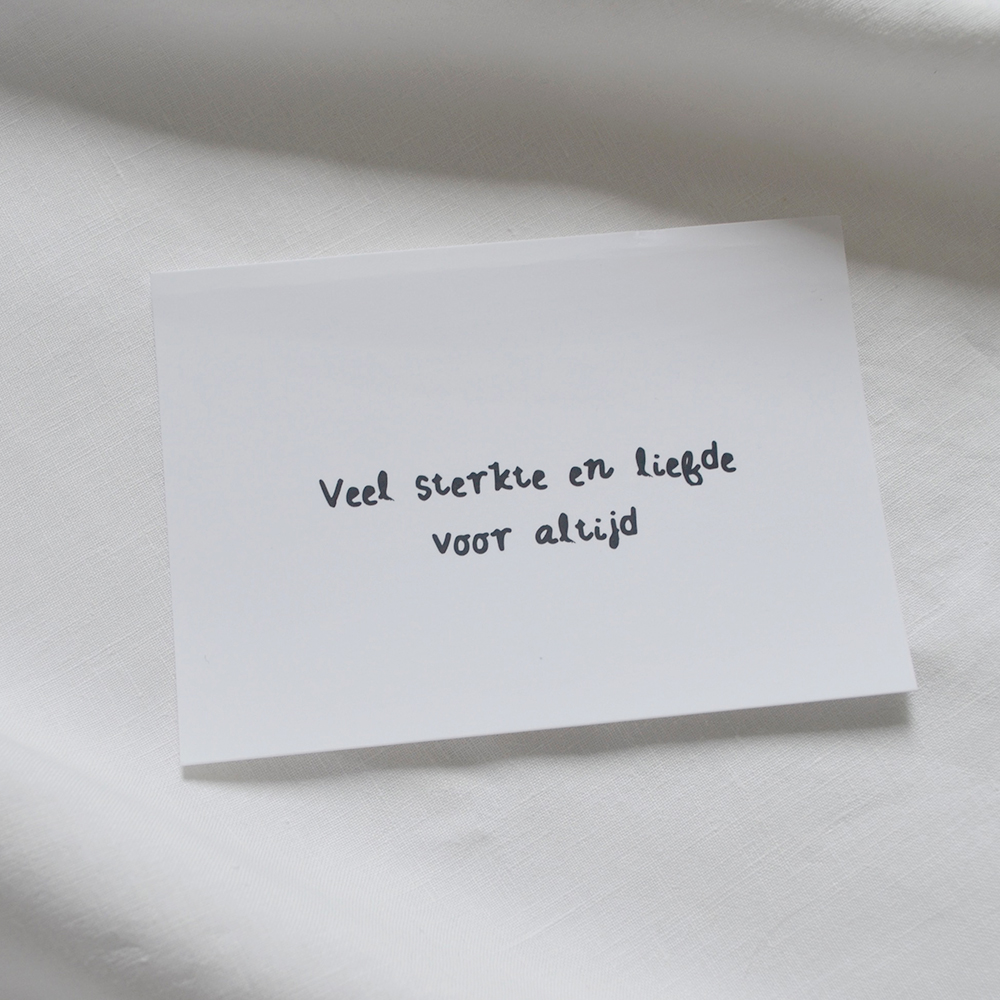 Veel sterkte en liefde
voor altijd